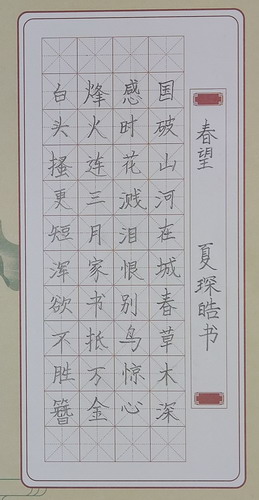 春望
夏琛皓书
国破山河在城春草木深
感时花溅泪恨别鸟惊心
烽火连三月家书抵万金
白头搔更短浑欲不胜簪